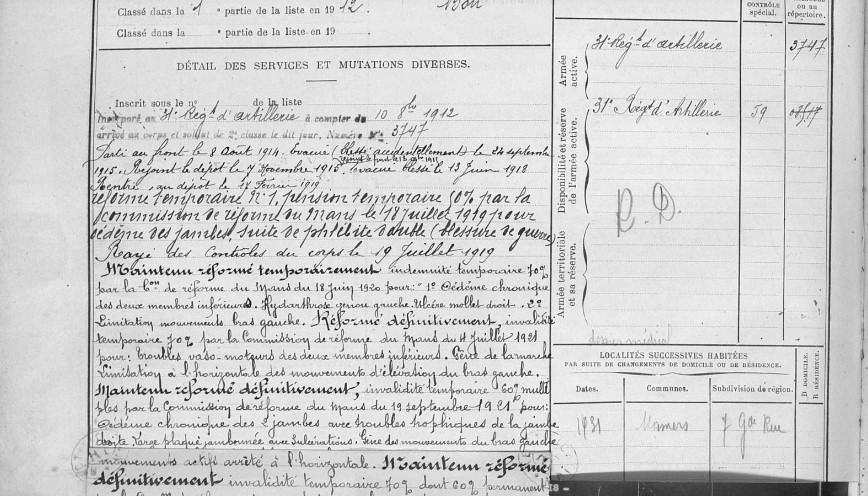 Classé dans la 1 e partie de la liste en 1912. Bon
Classé dans la e partie de la liste en 19
DÉTAIL DES SERVICES ET MUTATIONS DIVERSES.
Inscrit sous le n° de la liste
Incorporé au 31e Régt d'artillerie à compter du 10 8bre 1912
arrivé au corps et soldat de 2e classe le dit jour, Numéro Mle 3747
Parti au front le 8 Août 1914. Evacué (blessé accidentellement) le 24 septembre
1915. Rejoint le dépôt le 7 Novembre 1915. Evacué blessé le 13 Juin 1918
Rentré au dépôt le 17 Février 1919
réforme temporaire N° 1, pension temporaire 50% par la
commission de réforme du Mans le 18 Juillet 1919 pour
œdème des jambes, suite de phlébite double (blessure de guerre)
Rayé des Controles du corps le 19 Juillet 1919
Maintenu réformé temporairement indemnité temporaire 70%
par la Con de réforme du Mans du 18 Juin 1920 pour: 1° Œdème chronique
des deux membres inférieurs. Hydarthrose genou gauche. Ulcère mollet droit. 2°
Limitation mouvements bras gauche. Réformé définitivement, invalidité
temporaire 70% par la Commission de réforme du Mans du 4 Juillet 1921
pour: troubles vaso-moteurs des deux membres inférieurs. Gêne de la marche
Limitation à l'horizontale des mouvements d'élévation du bras gauche.
Maintenu réformé définitivement, invalidité temporaire 60% multi
ples par la Commission de réforme du Mans du 19 septembre pour:
Œdème chronique des 2 jambes avec troubles trophiques de la jambe
droite. Large plaque jambonnée avec ulcérations. Gêne des mouvements du bras gauche
mouvements actifs arrêté à l'horizontale. Maintenu réformé
définitivement invalidité temporaire 70% dont 60% permanent
CONTRÔLE
spécial.
ou au
répertoire.
Armée
active.
31e Régt d'artillerie
3747
Disponibilité et réserve
de l'armée active.
31e Régt d'Artillerie
59
Armée territoriale
et sa réserve.
R. D.
dossier médical
LOCALITÉS SUCCESSIVES HABITÉES
PAR SUITE DE CHANGEMENTS DE DOMICILE OU DE RÉSIDENCE.
D DOMICILE.
R RÉSIDENCE.
Dates.
Communes.
Subdivision de région.
1931
Mamers
7 Gde Rue